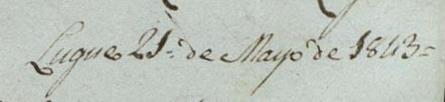 Luque 21,, de Mayo de 1843=